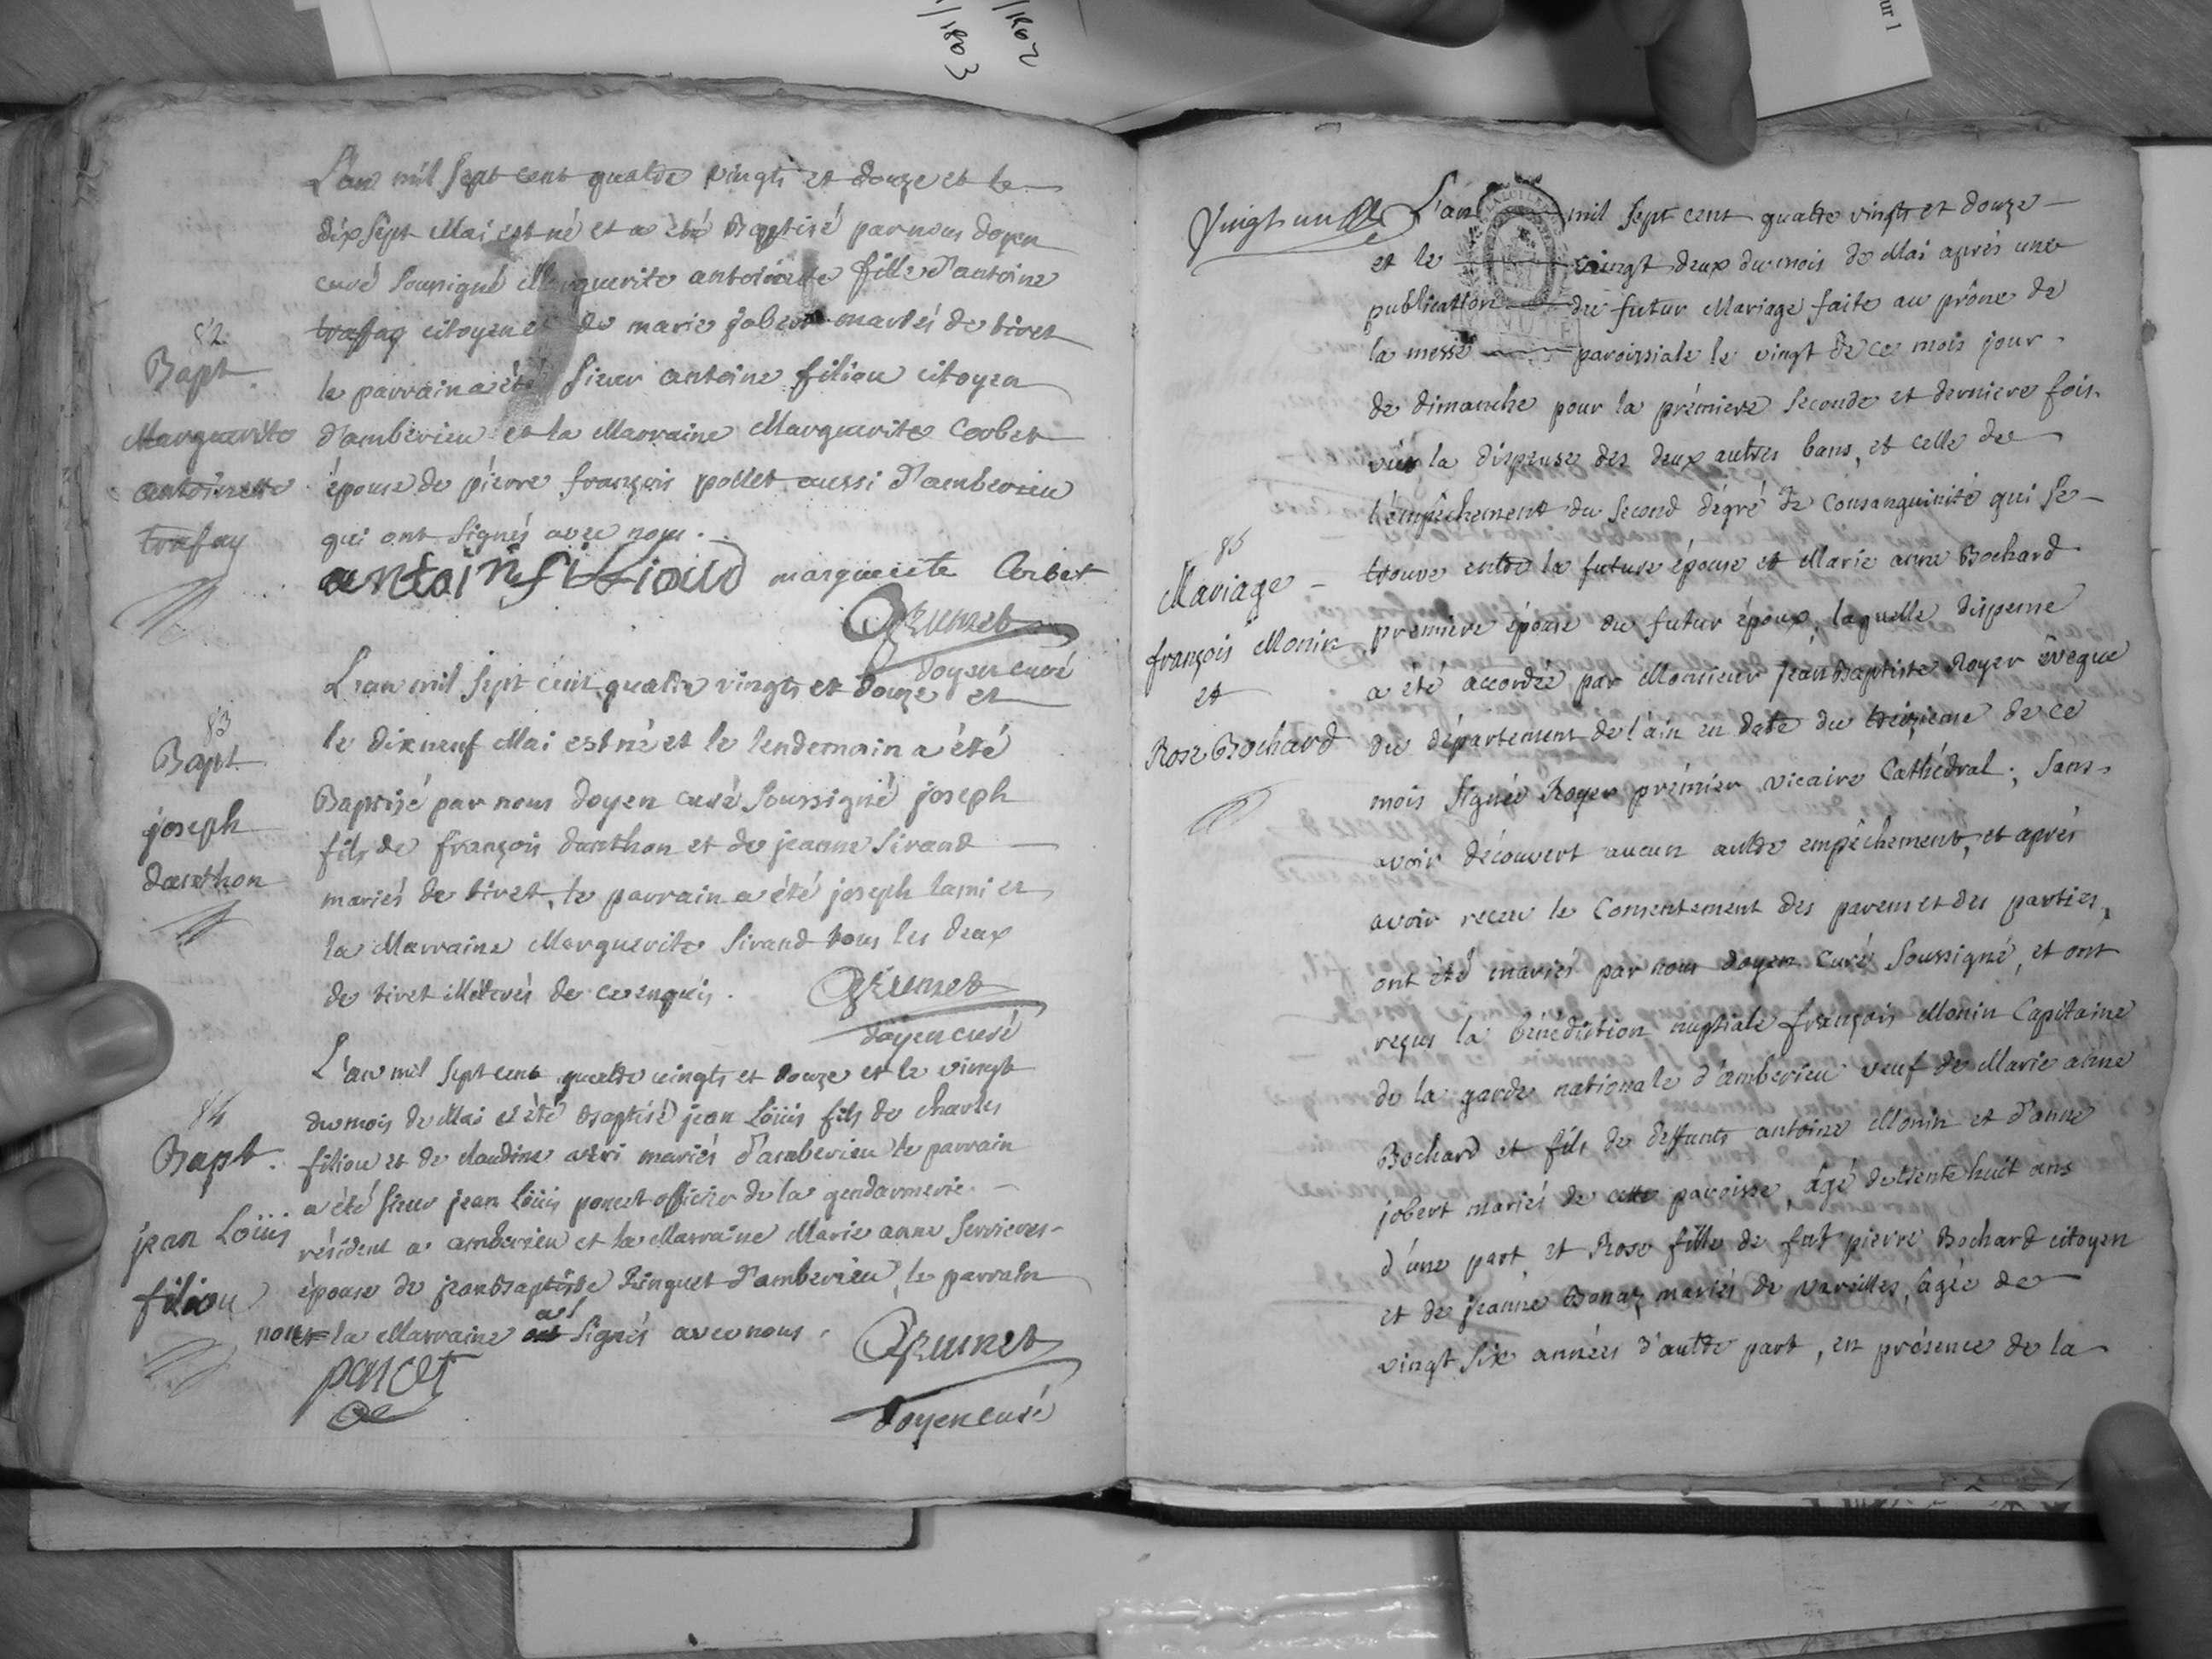 /1802
/1803
ur 1
L'an mil sept cent quatre vingts et douze et le
dix sept Mai est né et a été Baptisé par nous doyen
curé soussigné Marguerite antoinette fille d'antoine
traffay citoyen et de marie jobert mariés de tiret
82
Bapt.
Marguerite
antoinette
trafay
le parrain a été sieur antoine filiou citoyen
d'amberieu et la Marraine Marguerite Corbet
épouse de pierre françois pollet aussi d'amberieu
qui ont signés avec nous.
antoin filioud marguerite Corbet
Grumet
doyen curé
L'an mil sept cent quatre vingts et douze et
le dixneuf Mai est né et le lendemain a été
83
Bapt.
joseph
danthon
Baptisé par nous doyen curé soussigné joseph
fils de françois danthon et de jeanne sirand
mariés de tiret, le parrain a été joseph lamier
la Marraine Marguerite sirand tous les deux
de tiret illétrés de ce enquis.
Grumet
doyen curé
L'an mil sept cent quatre vingts et douze et le vingt
du mois de Mai a été Baptisé jean Loüis fils de charles
84
Bapt.
jean Loüis
filiou
filiou et de claudine mariés d'amberieu le parrain
a été sieur jean Loüis poncet officier de la gendarmerie
résident a amberieu et la Marraine Marie anne servieres
épouse de jean Baptiste Ringuet d'amberieu, le parrain
non la Marraine a signés avec nous.
poncet
Grumet
doyen curé
Vingt un
L'an mil sept cent quatre vingts et douze
et le vingt deux du mois de Mai aprés une
publication du futur Mariage faite au prône de
la messe paroissiale le vingt de ce mois jour
de dimanche pour la prémiere seconde et derniere fois
vüe la dispense des deux autres bans, et celle de
l'émpêchement du second dégré de Consanguinité qui se
85
Mariage
françois Monin
et
Rose Bochard
trouve entre la future épouse et Marie anne Bochard
premiere épouse du futur époux, laquelle dispense
a été accordée par Monsieur jean Baptiste Royer évêque
du département de l'ain en date du treizieme de ce
mois signée Royer prémier vicaire Cathédral; sans
avoir découvert aucun autre empêchement, et aprés
avoir receu le Consentement des parens et des parties,
ont été mariés par nous doyen curé soussigné, et ont
reçus la bénédiction nuptiale françois Monin Capitaine
de la garde nationale d'amberieu veuf de Marie anne
Bochard et fils de deffunts antoine Monin et d'anne
jobert mariés de cette paroisse, âgé de trente huit ans
d'une part, et Rose fille de fut pierre Bochard citoyen
et de jeanne Bonaz mariés de vareilles, agée de
vingt six années d'autre part, en présence de la